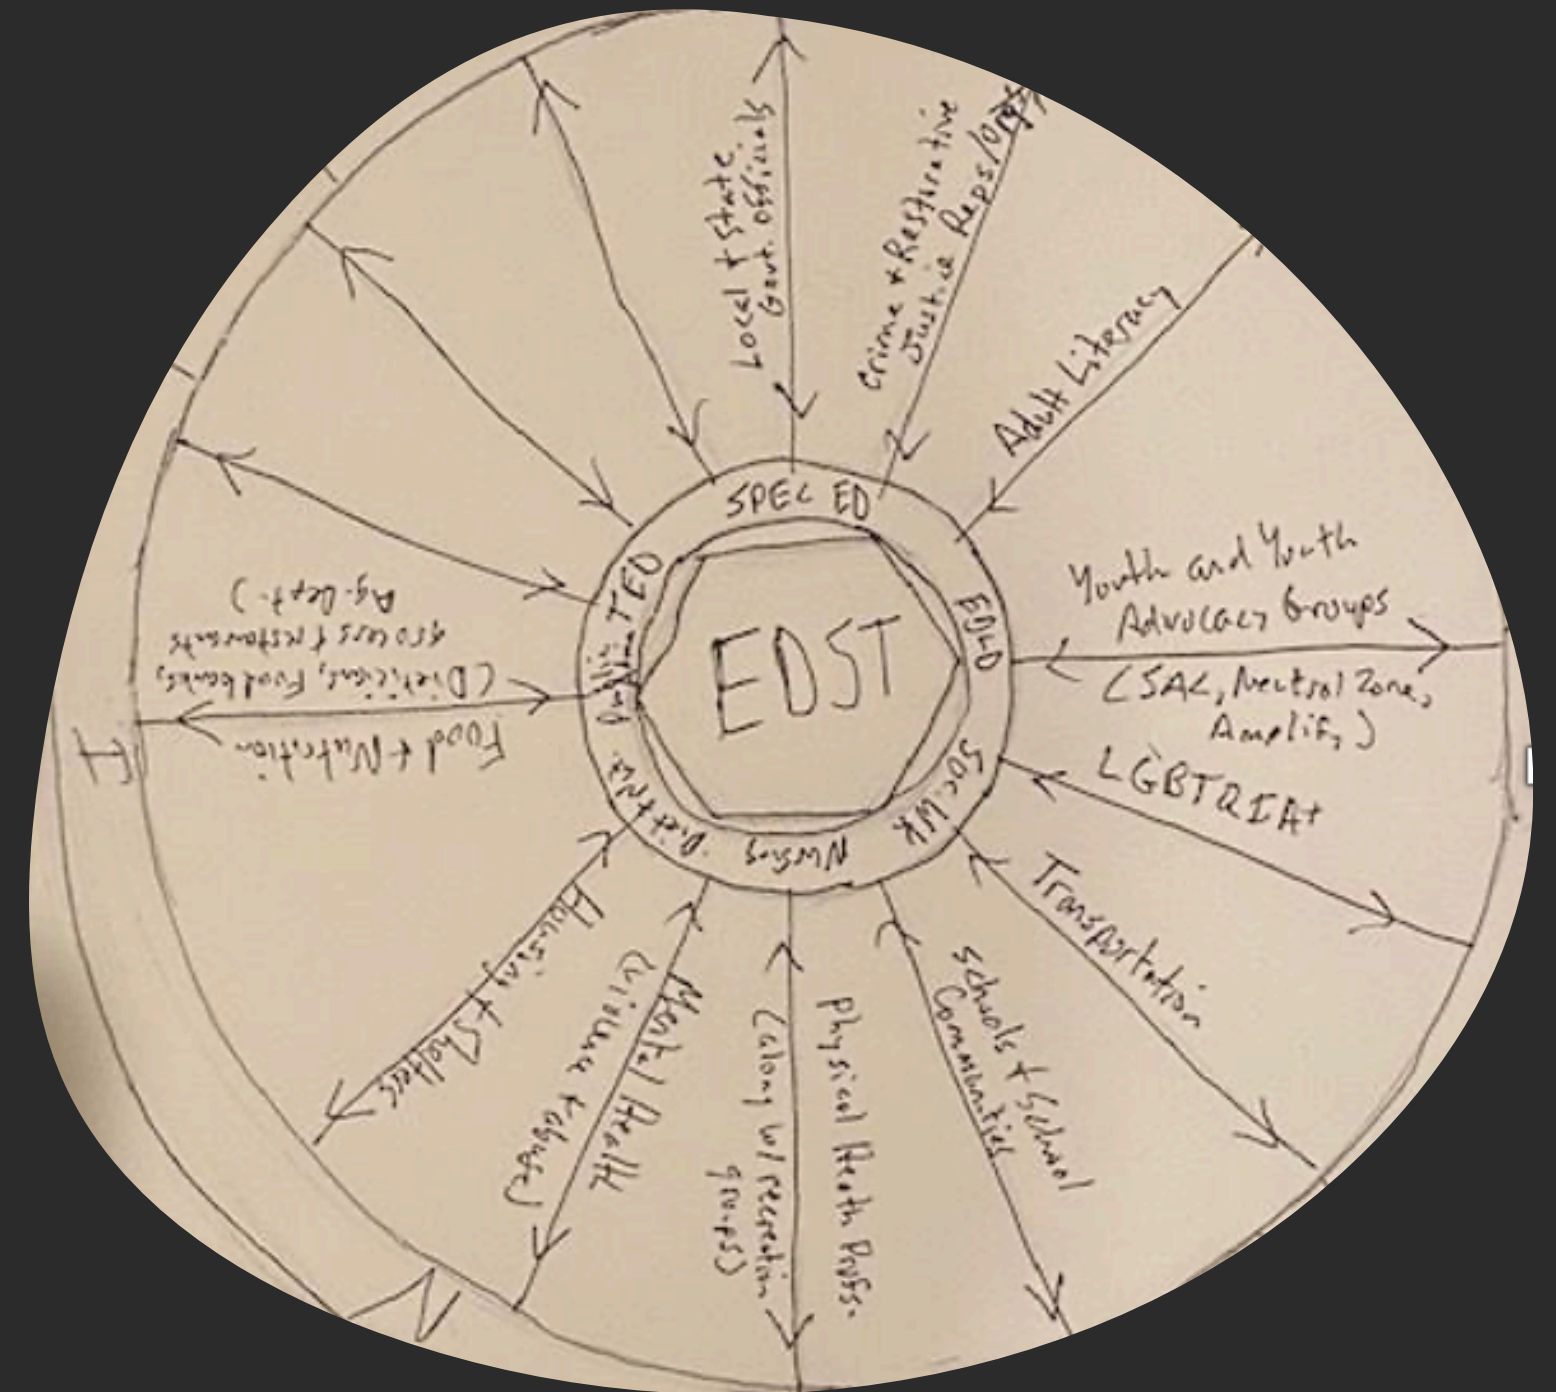 EDST
SPEC ED
EDLD
SOC. WK
Nursing
Diet + Nut.
TED
Local + State
Govt. Officials
Crime + Restorative
Justice Reps/Orgs
Adult Literacy
Youth and Youth
Advocacy Groups
(SAC, Neutral Zone,
Amplify)
LGBTQIA+
Transportation
Schools + School
Communities
Physical Health Profs.
(along w/ recreation
groups)
Mental Health
(violence + abuse)
Housing + Shelters
Food + Nutrition
(Dieticians, Foodbanks,
grocers + restaurants
Ag. Dept.)
I
N